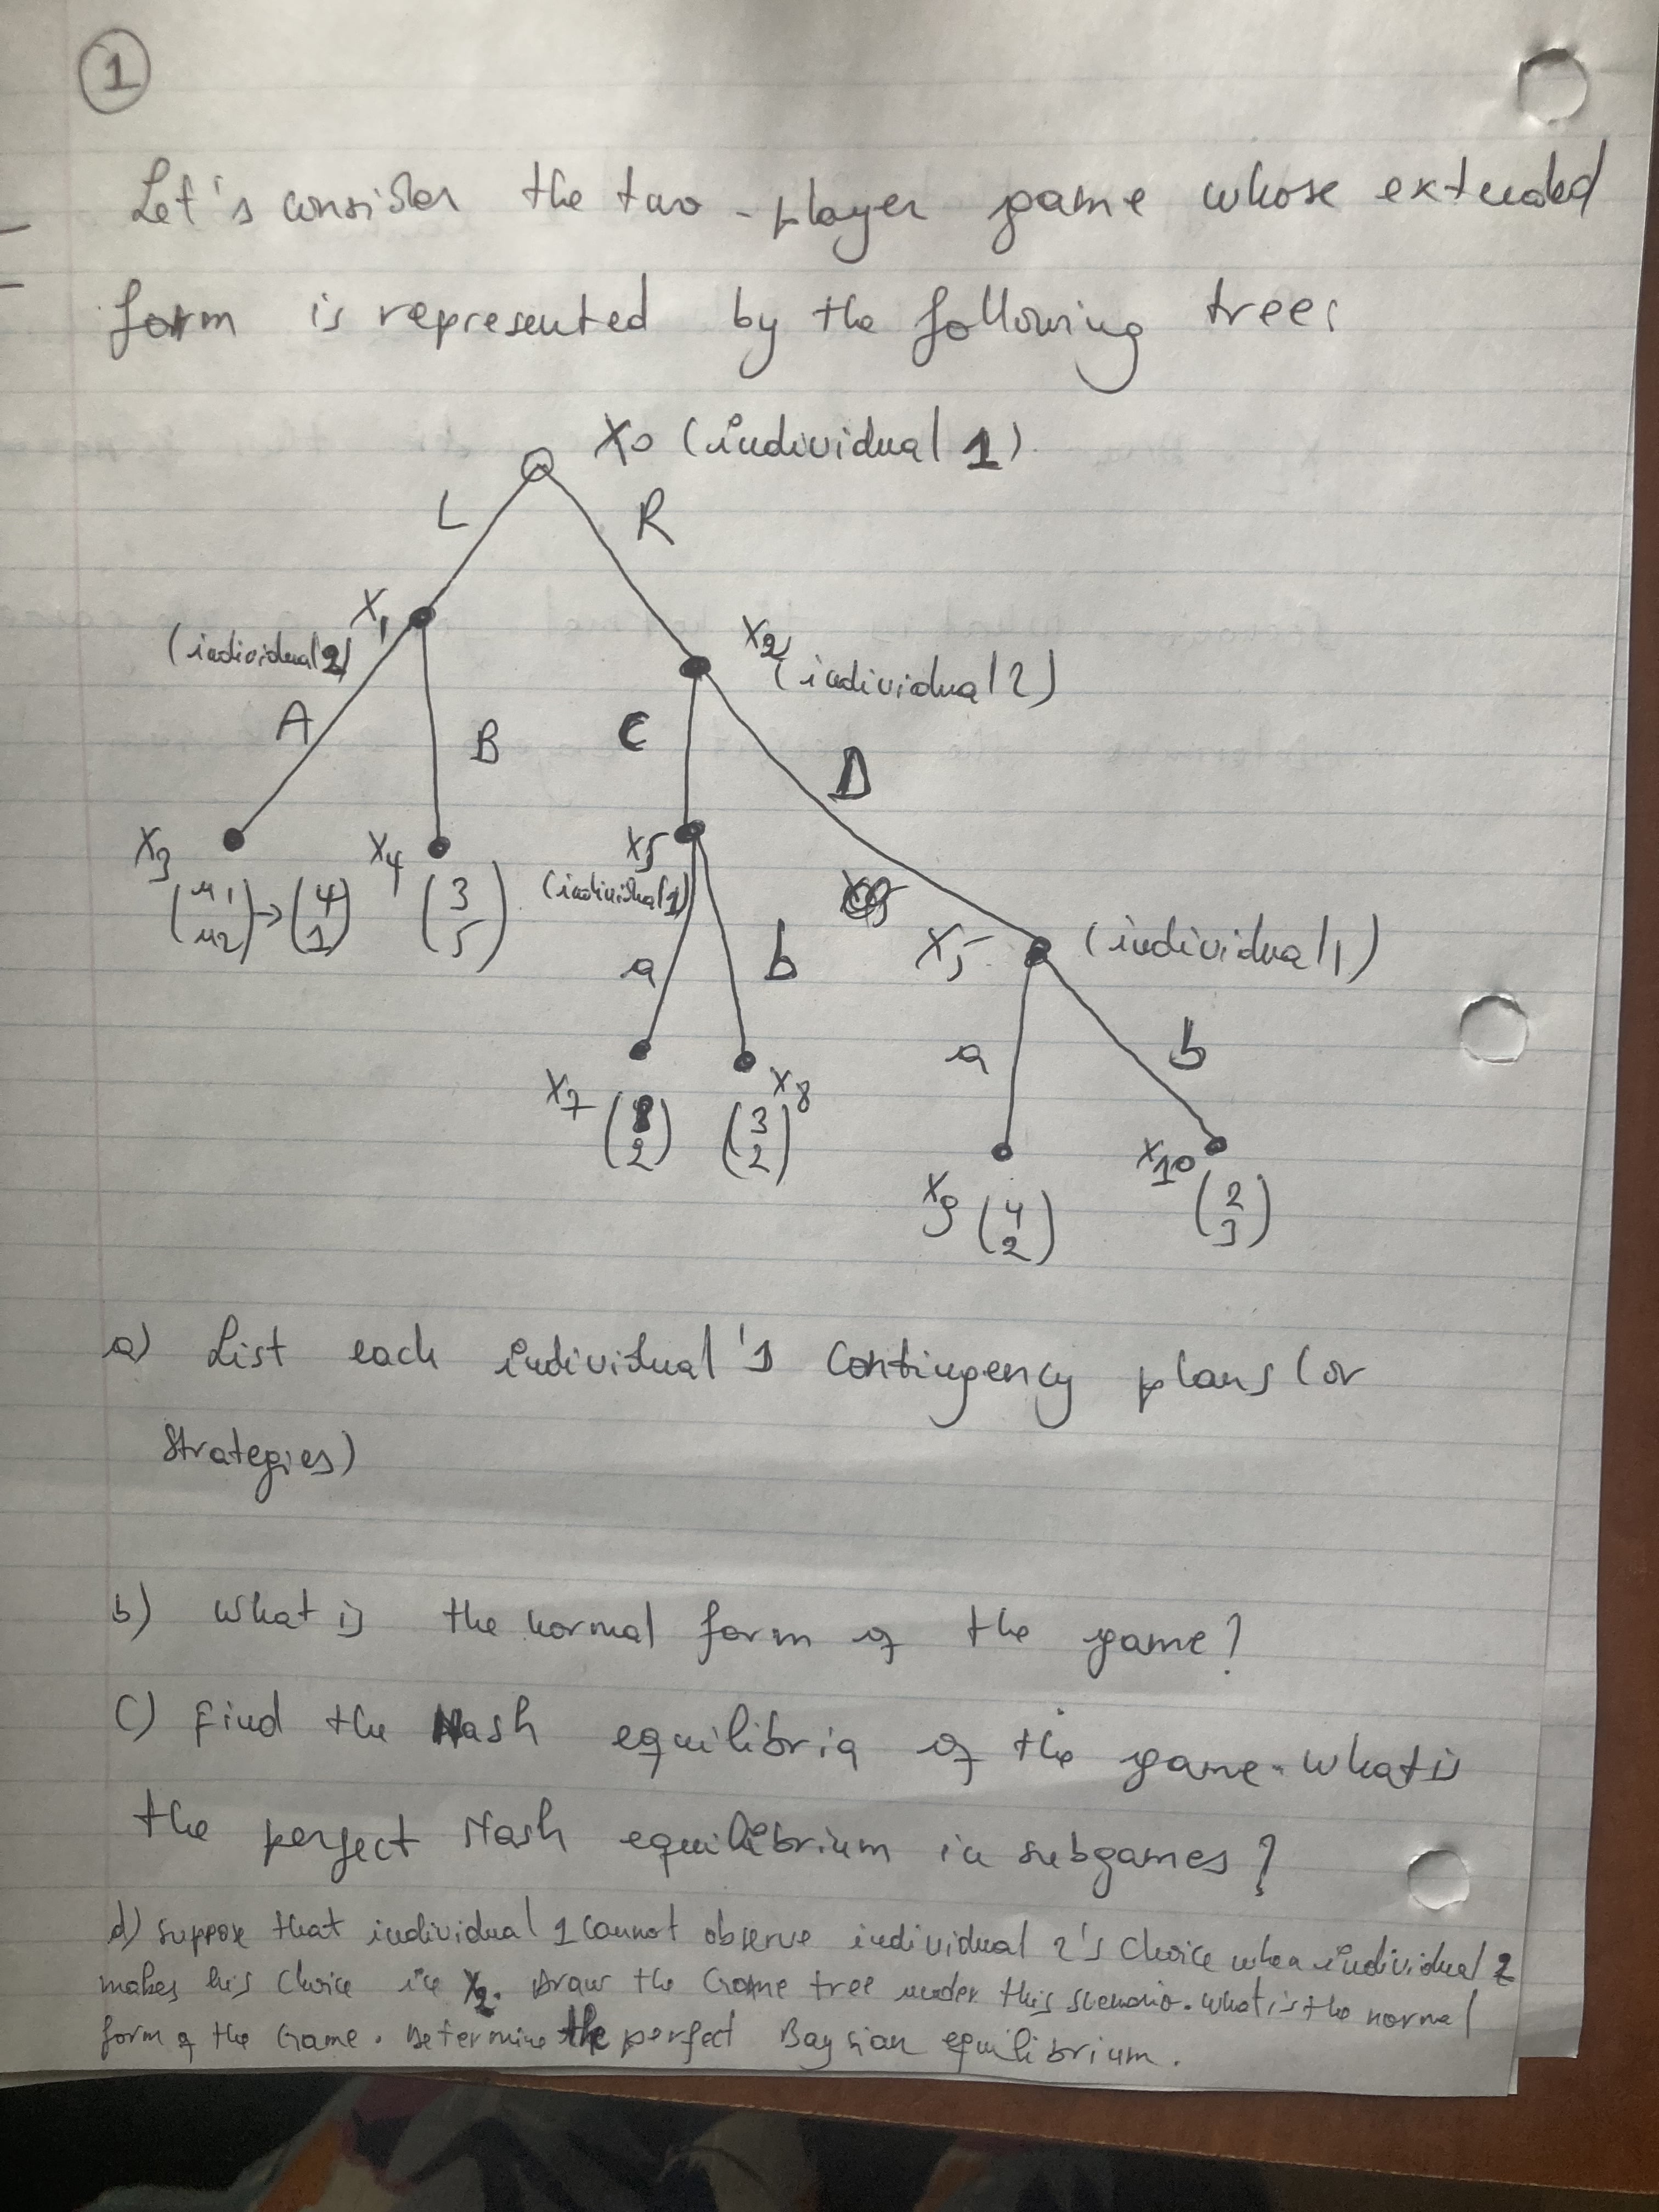 1
Let's consider the two-player game whose extended
form is represented by the following tree:
X0 (individual 1)
L R
X1 (individual 2)
X2 (individual 2)
A B C D
X3 X4 X5 (individual 1)
(u1 u2) → (4 1) (3 5)
X5 (individual 1)
a b
a b
X7 ( 2) X8 (3 2)
X9 (4 2) X10 (2 3)
a) List each individual's contingency plans (or
strategies)
b) What is the normal form of the game?
C) Find the Nash equilibria of the game. What is
the perfect Nash equilibrium in subgames?
d) Suppose that individual 1 cannot observe individual 2's choice when individual 2
makes his choice in X2. Draw the Game tree under this scenario. What is the normal
form of the Game. Determine the perfect Baysian equilibrium.